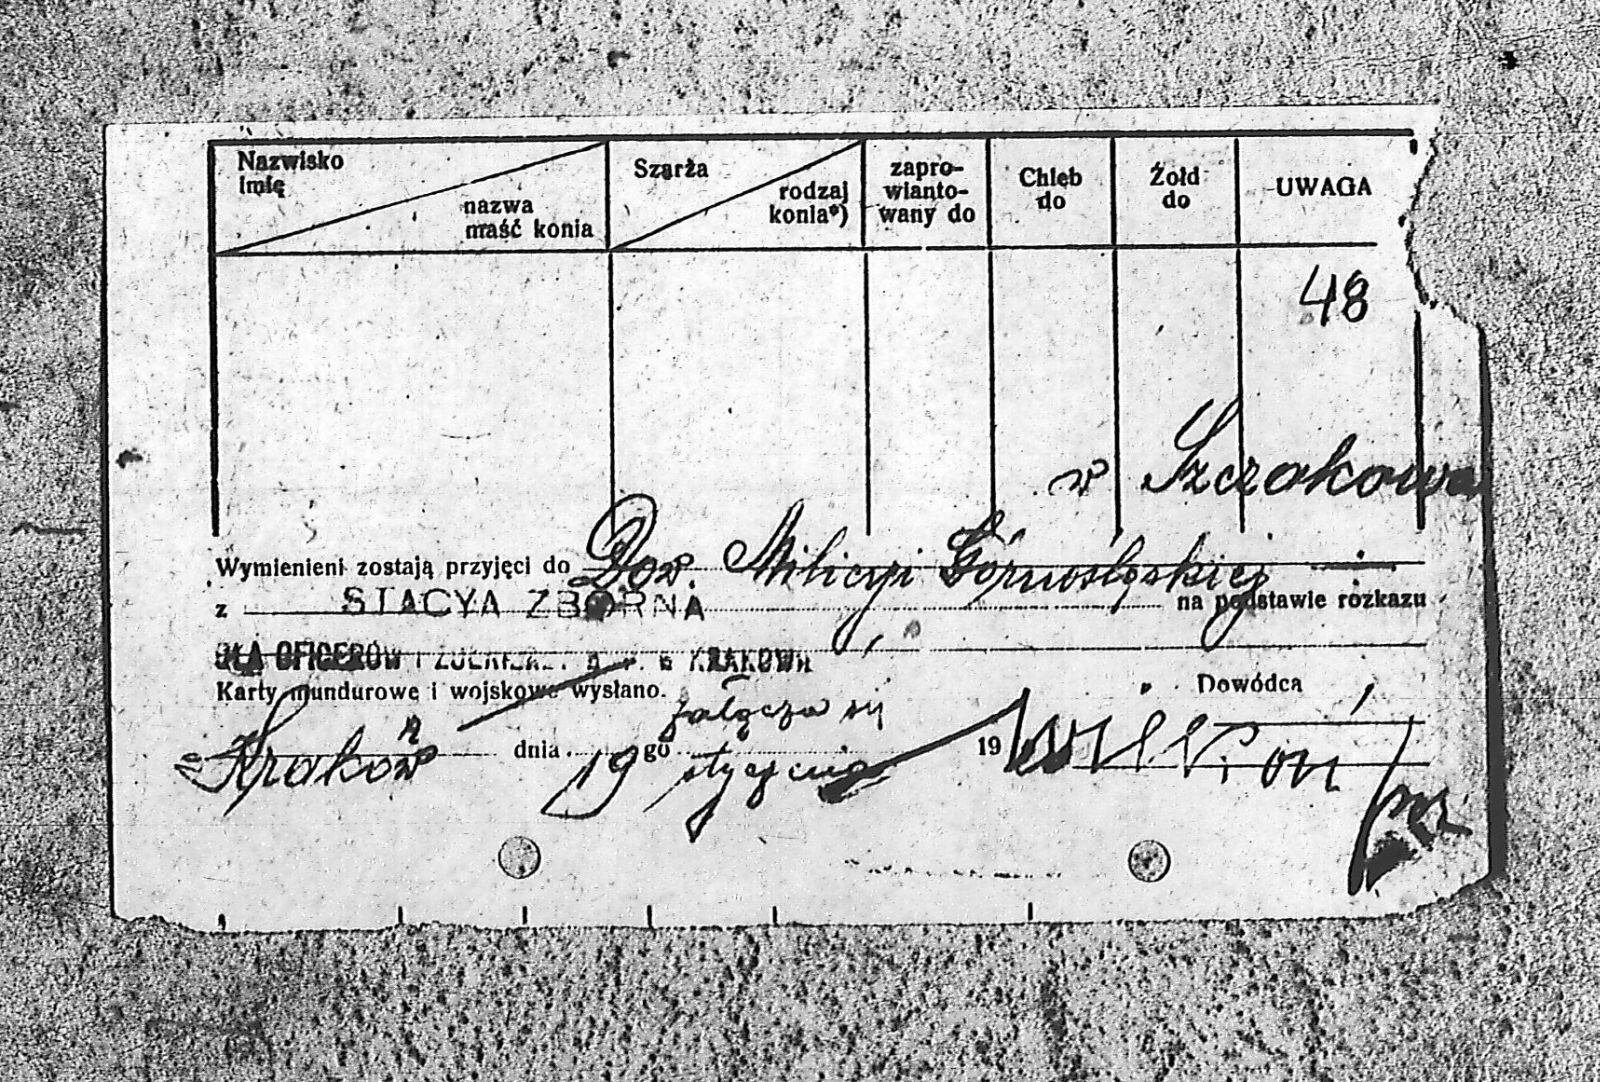 Nazwisko
imię
nazwa
maść konia
Szarża
rodzaj
konia*)
zapro-
wianto-
wany do
Chleb
do
Żołd
do
UWAGA
48
w Szczakowa
Wymienieni zostają przyjęci do Dow. Milicyi Górnośląskiej
z STACYA ZBORNA na podstawie rozkazu
DLA OFICERÓW I KRAKOWIE
Karty mundurowe i wojskowe wysłano.
załącza się
Dowódca
Kraków dnia 19 go stycznia 19